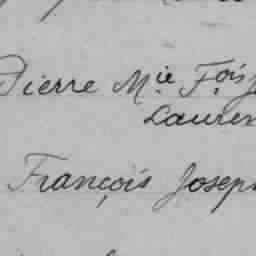 Pierre M.ie F.ois J
Lauren
François Joseph